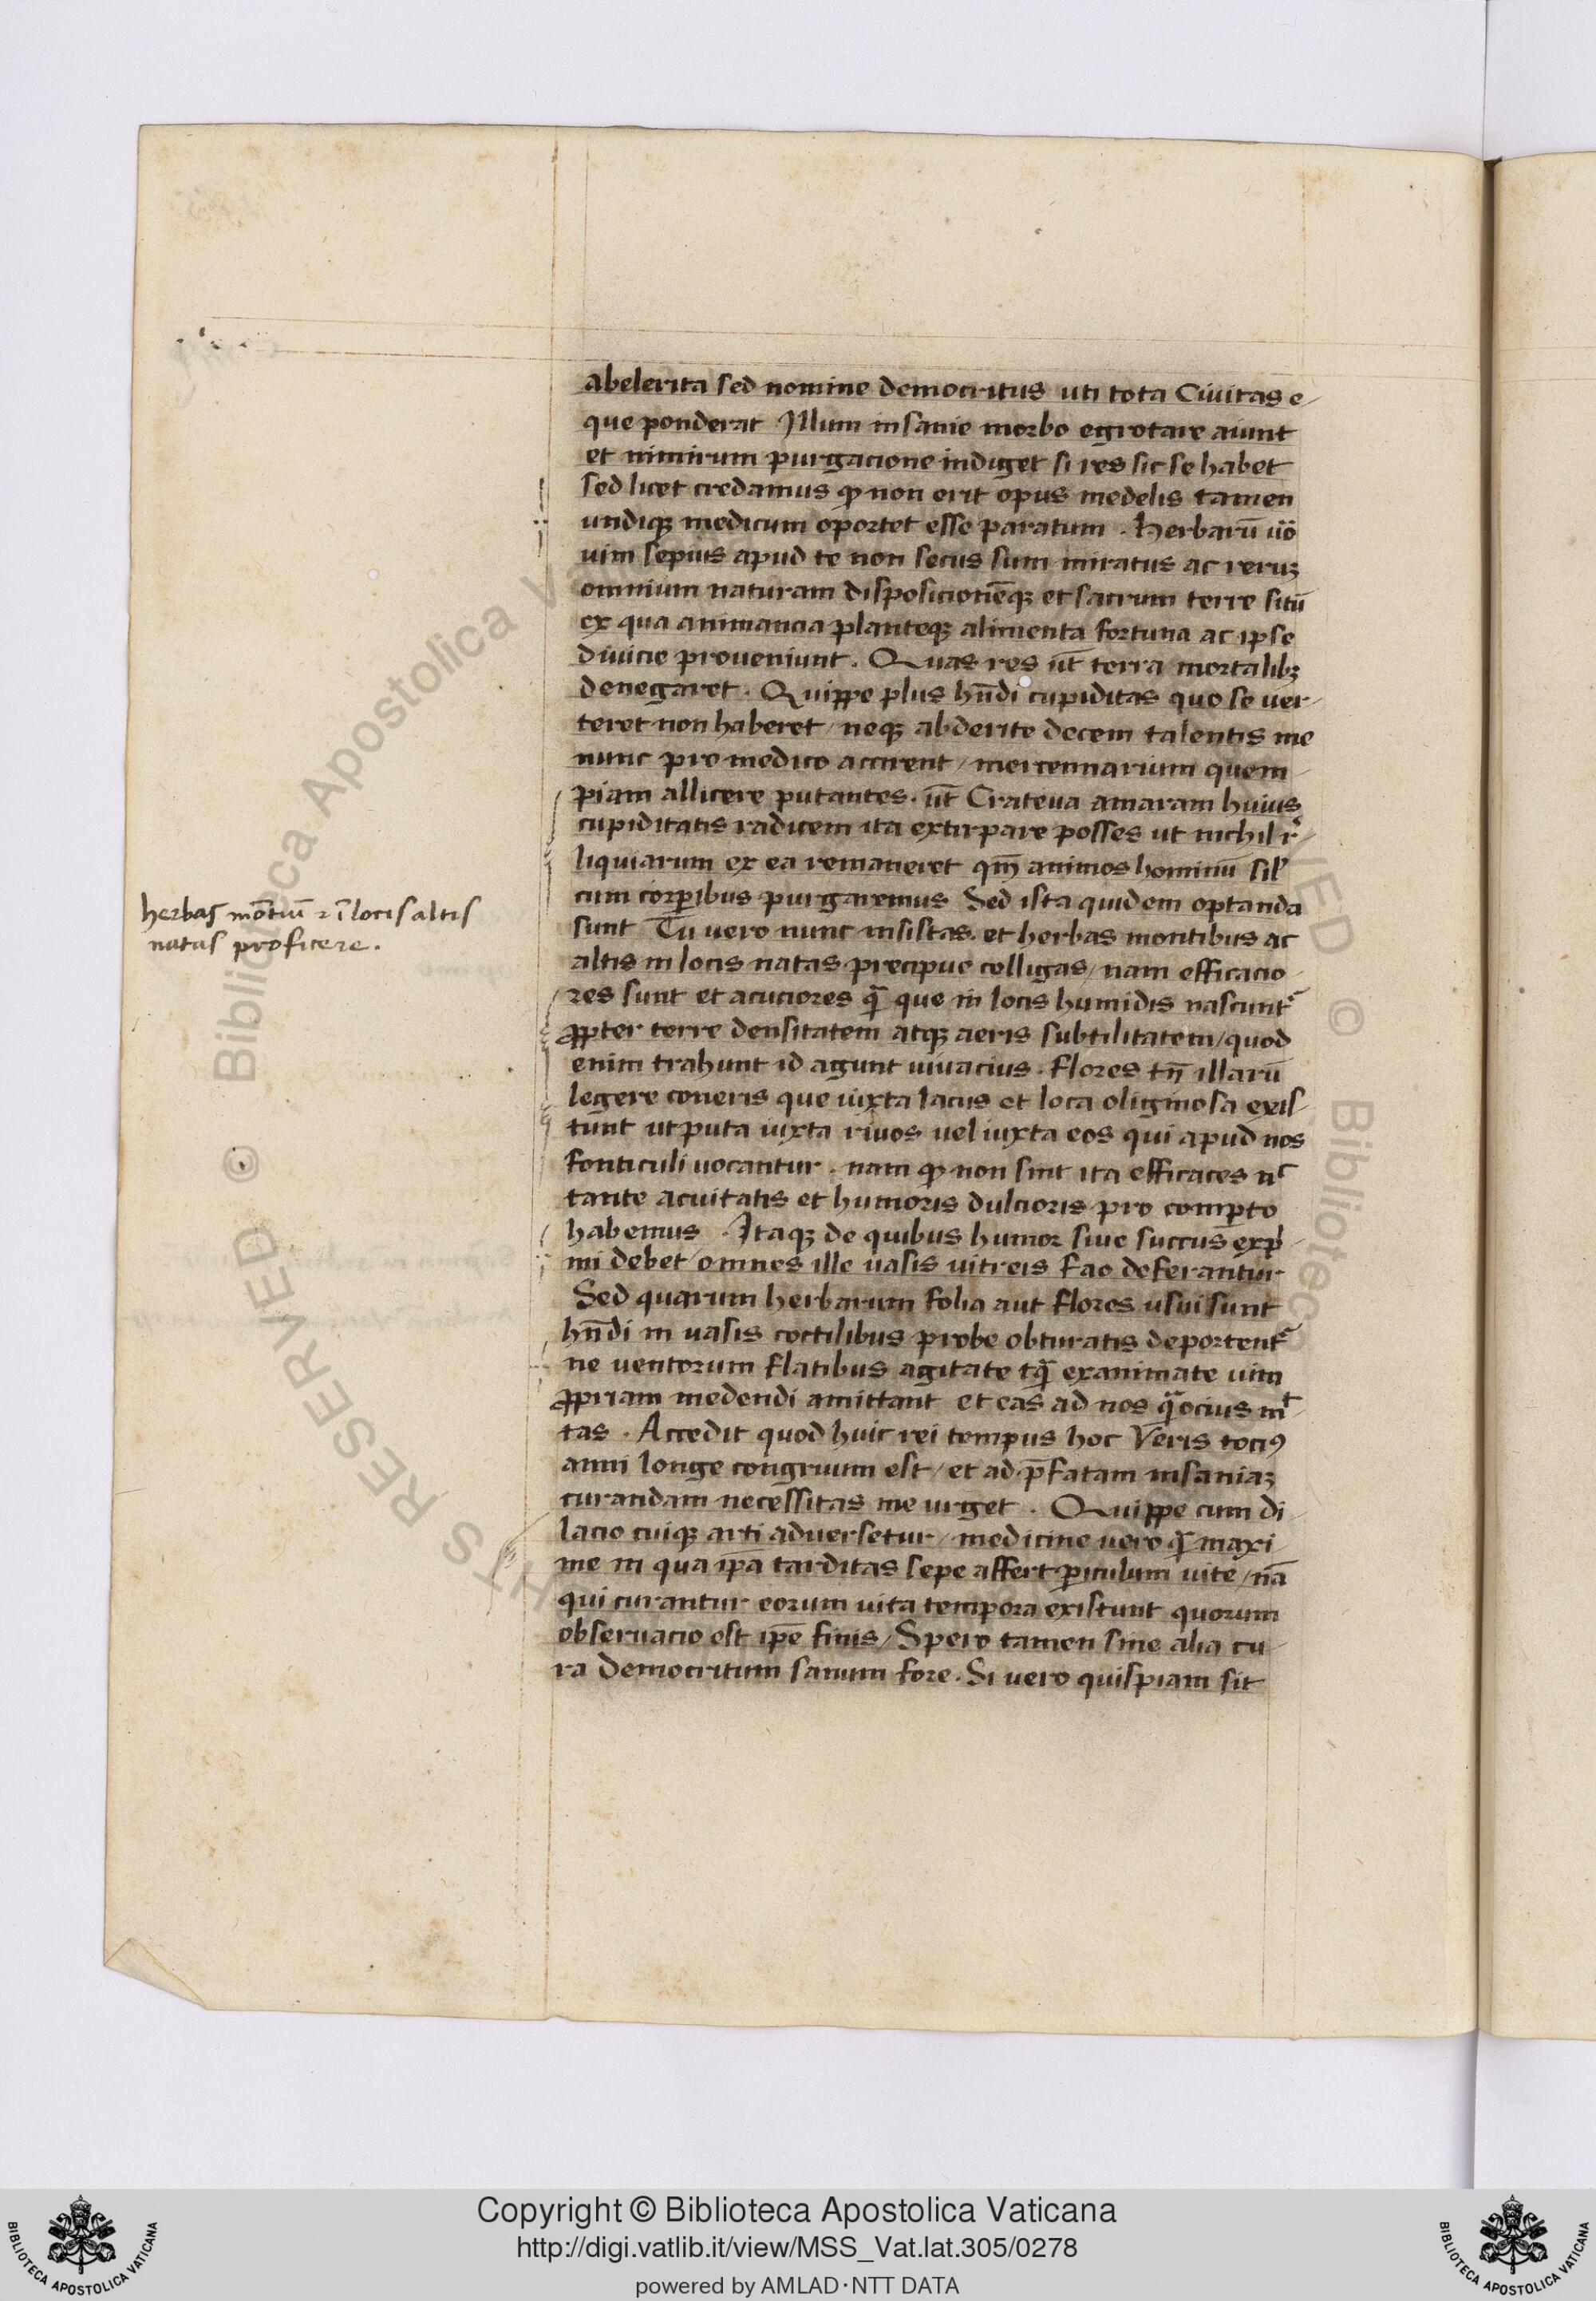 abelerita sed nomine democritus uti tota Civitas e-
que ponderat Illum insanie morbo egrotare aiunt
et nimirum purgacione indiget si res sic se habet
sed licet credamus ꝙ non erit opus medelis tamen
undiqꝫ medicum oportet esse paratum . Herbarū ūo
uim sepius apud te non secus sum miratus ac reruꝫ
omnium naturam disposicionēqꝫ et sacrum terre sitū
ex qua animancia planteqꝫ alimenta fortuna ac ipse
divicie proveniunt . Quas res ut̄ terra mortalibꝫ
denegaret . Quippe plus hn̄di cupiditas quo se ver-
teret non haberet / neqꝫ abderite decem talentis me
nunc pro medico accirent / mercennarium quem-
piam allicere putantes . ut̄ Crateva amaram huius
cupiditatis radicem ita extirpare posses ut nichil r̄-
liquiarum ex ea remaneret qm̄ animos hominū sil̄
cum corꝑibus purgaremus Sed ista quidem optanda
sunt Tu vero nunc insistas . et herbas montibus ac
altis in locis natas precipue colligas / nam efficacio-
res sunt et acuciores qͣ̄ que in locis humidis nascunt᷑
ꝓpter terre densitatem atqꝫ aeris subtilitatem / quod
enim trahunt id agunt vivacius . flores tn̄ illarū
legere coneris que iuxta lacus et loca oliginosa exis-
tunt utputa iuxta rivos vel iuxta eos qui apud nos
fonticuli vocantur . nam ꝙ non sint ita efficaces nͨ
tante acuitatis et humoris dulcioris pro compto
habemus . Itaqꝫ de quibus humor sive succus exp̄-
mi debet / omnes ille vasis vitreis fac deferantur
Sed quarum herbarum folia aut flores usui sunt
hn̄di in vasis coctilibus probe obturatis deportent᷑
ne ventorum flatibus agitate tqͣ̄ exanimate vim
ꝓpriam medendi amittant et eas ad nos qͣ̄ ocius mͭ-
tas . Accedit quod huic rei tempus hoc Veris tociꝰ
anni longe congruum est / et ad p̄fatam insaniaꝫ
curandam necessitas me urget . Quippe cum di-
lacio cuiqꝫ arti adversetur / medicine vero qͣ̄ maxi-
me in qua ip̄a tarditas sepe affert ꝑiculum vite / nā
qui curantur eorum vita tempora existunt quorum
observacio est ip̄e finis / Spero tamen sine alia cu-
ra democritum sanum fore . Si vero quispiam sit
herbas mōtiū ⁊ ī locis altis
natas proficere .
Biblioteca Apostolica Vaticana
RIGHTS RESERVED © Biblioteca Apostolica V
VED © Biblioteca
Copyright © Biblioteca Apostolica Vaticana
http://digi.vatlib.it/view/MSS_Vat.lat.305/0278
powered by AMLAD·NTT DATA
BIBLIOTECA APOSTOLICA VATICANA
BIBLIOTECA APOSTOLICA VATICANA